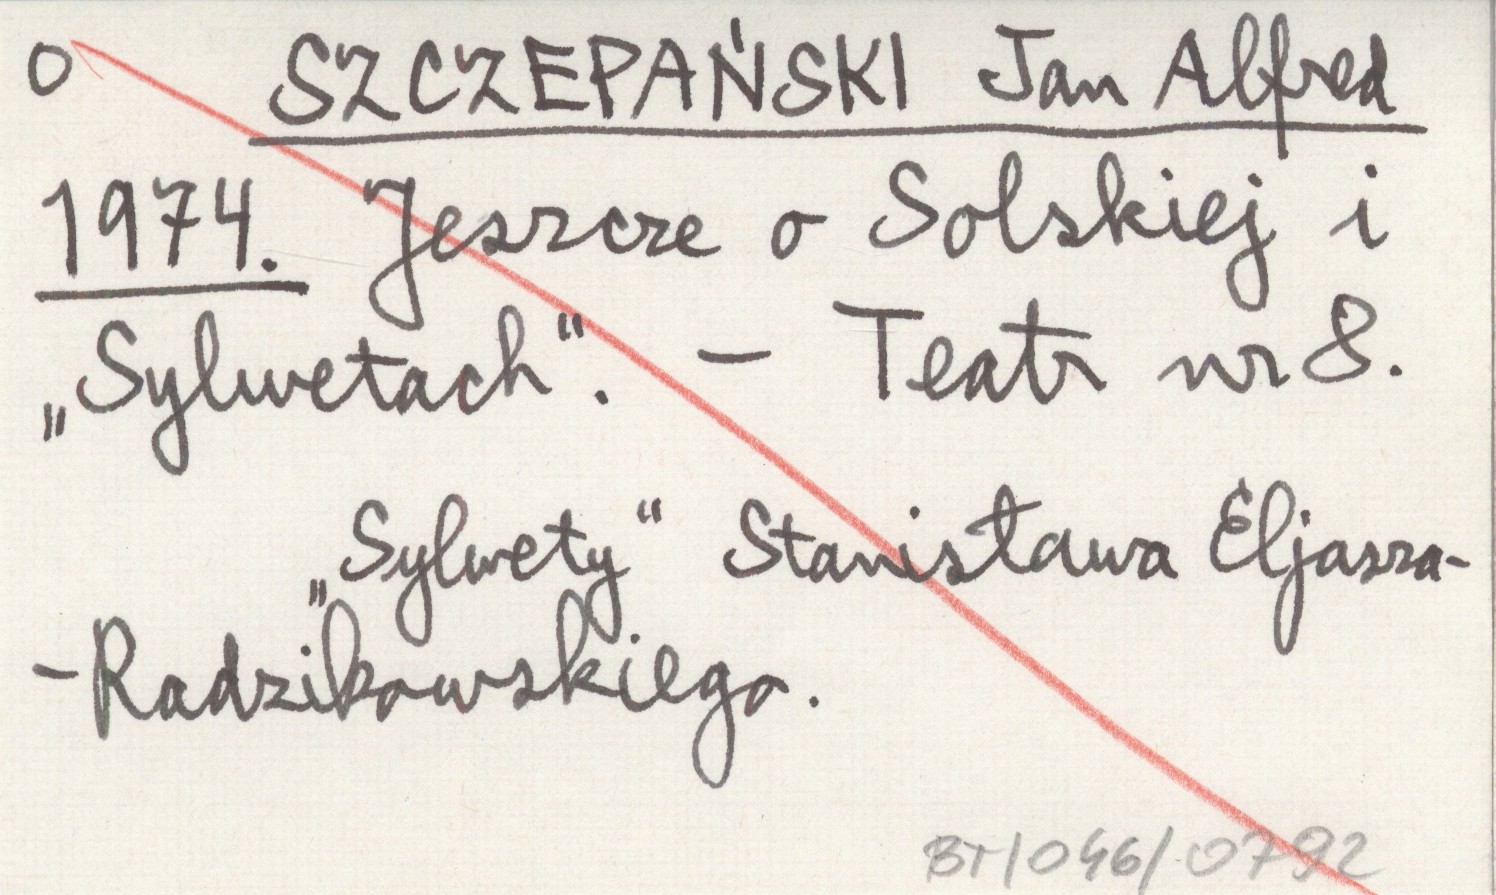 o SZCZEPAŃSKI Jan Alfred
1974. Jeszcze o Solskiej i
„Sylwetach". — Teatr nr 8.
„Sylwety" Stanisława Eljasza-
-Radzikowskiego.
BT/046/0792